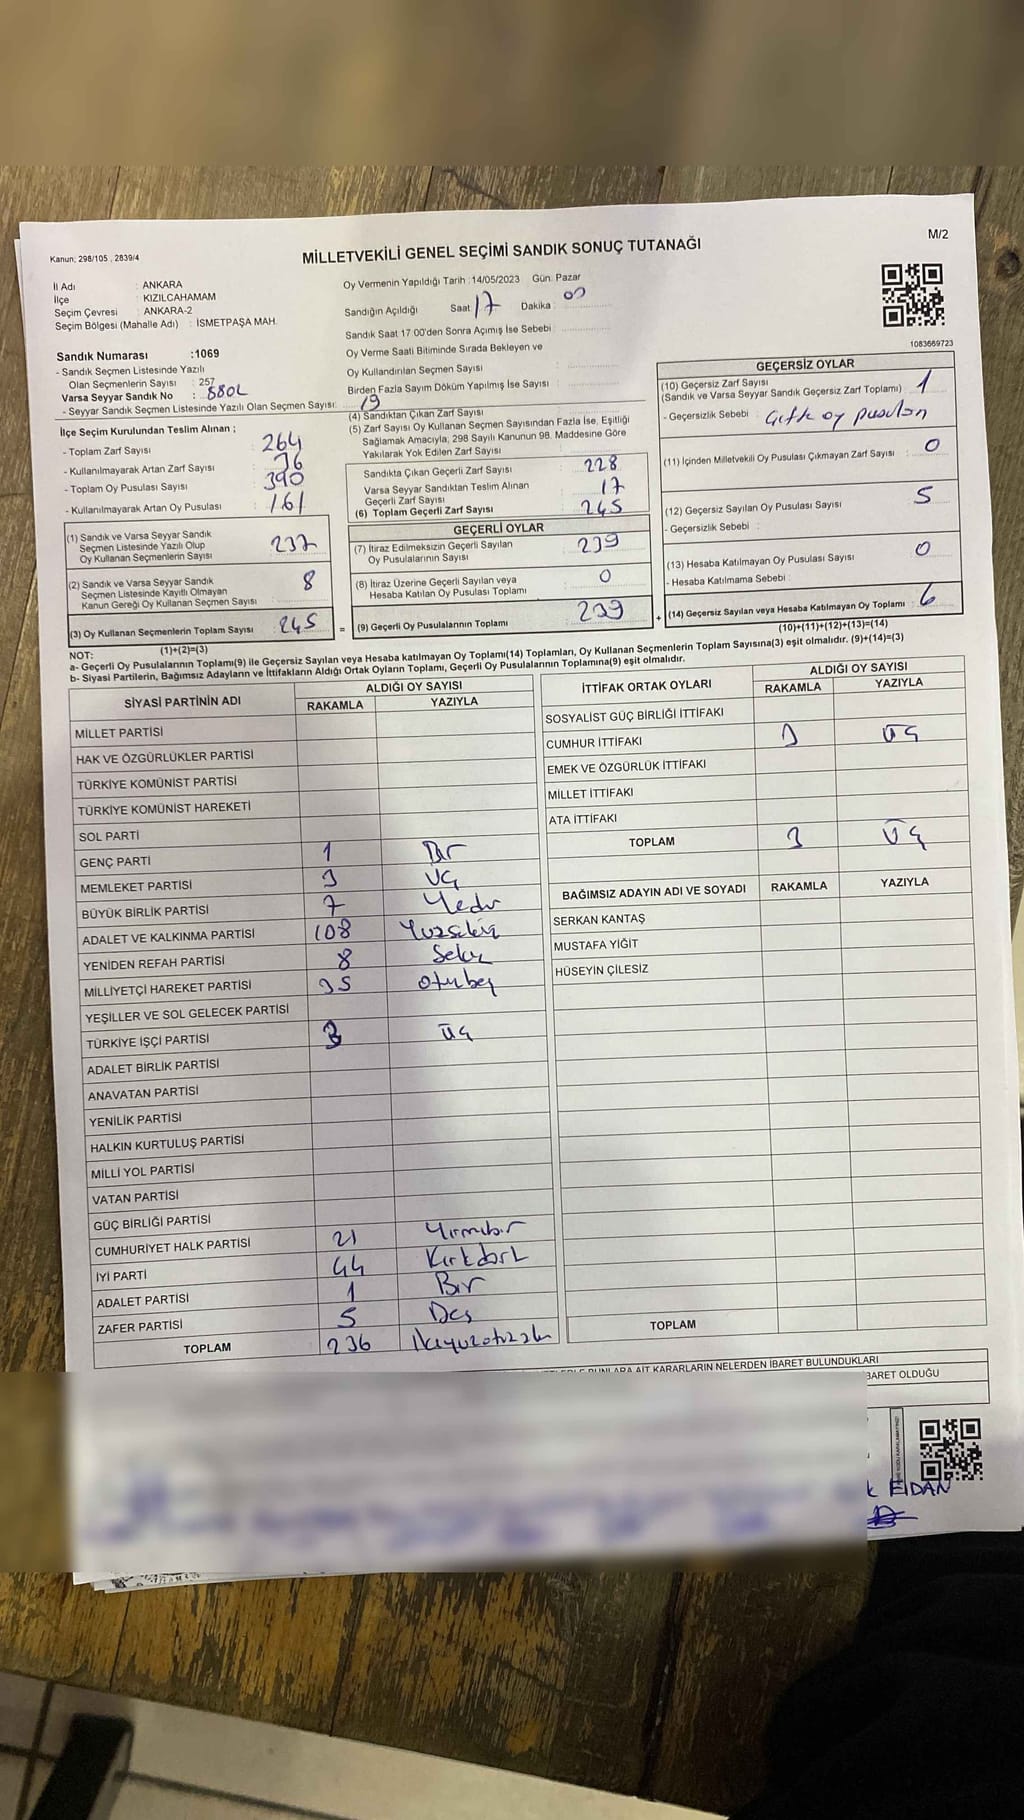 M/2
Kanun; 298/105 , 2839/4
MİLLETVEKİLİ GENEL SEÇİMİ SANDIK SONUÇ TUTANAĞI
İl Adı : ANKARA
İlçe : KIZILCAHAMAM
Seçim Çevresi : ANKARA-2
Seçim Bölgesi (Mahalle Adı) : İSMETPAŞA MAH.
Oy Vermenin Yapıldığı Tarih : 14/05/2023 Gün: Pazar
Sandığın Açıldığı Saat 17 Dakika :
Sandık Saat 17:00'den Sonra Açımış İse Sebebi :
Oy Verme Saati Bitiminde Sırada Bekleyen ve
Oy Kullandırılan Seçmen Sayısı :
Birden Fazla Sayım Döküm Yapılmış İse Sayısı :
1083669723
Sandık Numarası :1069
- Sandık Seçmen Listesinde Yazılı
Olan Seçmenlerin Sayısı : 257
Varsa Seyyar Sandık No :
- Seyyar Sandık Seçmen Listesinde Yazılı Olan Seçmen Sayısı: 19
İlçe Seçim Kurulundan Teslim Alınan ;
- Toplam Zarf Sayısı : 264
- Kullanılmayarak Artan Zarf Sayısı :
- Toplam Oy Pusulası Sayısı : 390
- Kullanılmayarak Artan Oy Pusulası : 161
(1) Sandık ve Varsa Seyyar Sandık
Seçmen Listesinde Yazılı Olup
Oy Kullanan Seçmenlerin Sayısı : 237
(2) Sandık ve Varsa Seyyar Sandık
Seçmen Listesinde Kayıtlı Olmayan
Kanun Gereği Oy Kullanan Seçmen Sayısı : 8
(3) Oy Kullanan Seçmenlerin Toplam Sayısı : 245
(1)+(2)=(3)
(4) Sandıktan Çıkan Zarf Sayısı :
(5) Zarf Sayısı Oy Kullanan Seçmen Sayısından Fazla İse, Eşitliği
Sağlamak Amacıyla, 298 Sayılı Kanunun 98. Maddesine Göre
Yakılarak Yok Edilen Zarf Sayısı :
Sandıkta Çıkan Geçerli Zarf Sayısı : 228
Varsa Seyyar Sandıktan Teslim Alınan
Geçerli Zarf Sayısı : 17
(6) Toplam Geçerli Zarf Sayısı : 245
GEÇERLİ OYLAR
(7) İtiraz Edilmeksizin Geçerli Sayılan
Oy Pusulalarının Sayısı : 239
(8) İtiraz Üzerine Geçerli Sayılan veya
Hesaba Katılan Oy Pusulası Toplamı : 0
= (9) Geçerli Oy Pusulalarının Toplamı : 239
GEÇERSİZ OYLAR
(10) Geçersiz Zarf Sayısı
(Sandık ve Varsa Seyyar Sandık Geçersiz Zarf Toplamı) : 1
- Geçersizlik Sebebi : Çift oy pusulası
(11) İçinden Milletvekili Oy Pusulası Çıkmayan Zarf Sayısı : 0
(12) Geçersiz Sayılan Oy Pusulası Sayısı : 5
- Geçersizlik Sebebi :
(13) Hesaba Katılmayan Oy Pusulası Sayısı : 0
- Hesaba Katılmama Sebebi :
+ (14) Geçersiz Sayılan veya Hesaba Katılmayan Oy Toplamı : 6
(10)+(11)+(12)+(13)=(14)
NOT:
a- Geçerli Oy Pusulalarının Toplamı(9) ile Geçersiz Sayılan veya Hesaba katılmayan Oy Toplamı(14) Toplamları, Oy Kullanan Seçmenlerin Toplam Sayısına(3) eşit olmalıdır. (9)+(14)=(3)
b- Siyasi Partilerin, Bağımsız Adayların ve İttifakların Aldığı Ortak Oyların Toplamı, Geçerli Oy Pusulalarının Toplamına(9) eşit olmalıdır.
SİYASİ PARTİNİN ADI ALDIĞI OY SAYISI
RAKAMLA YAZIYLA
MİLLET PARTİSİ
HAK VE ÖZGÜRLÜKLER PARTİSİ
TÜRKİYE KOMÜNİST PARTİSİ
TÜRKİYE KOMÜNİST HAREKETİ
SOL PARTİ
GENÇ PARTİ 1 Bir
MEMLEKET PARTİSİ 3 Üç
BÜYÜK BİRLİK PARTİSİ 7 Yedi
ADALET VE KALKINMA PARTİSİ 108 Yüzsekiz
YENİDEN REFAH PARTİSİ 8 Sekiz
MİLLİYETÇİ HAREKET PARTİSİ 35 Otuzbeş
YEŞİLLER VE SOL GELECEK PARTİSİ
TÜRKİYE İŞÇİ PARTİSİ 3 Üç
ADALET BİRLİK PARTİSİ
ANAVATAN PARTİSİ
YENİLİK PARTİSİ
HALKIN KURTULUŞ PARTİSİ
MİLLİ YOL PARTİSİ
VATAN PARTİSİ
GÜÇ BİRLİĞİ PARTİSİ
CUMHURİYET HALK PARTİSİ 21 Yirmibir
İYİ PARTİ 44 Kırkdört
ADALET PARTİSİ 1 Bir
ZAFER PARTİSİ 5 Beş
TOPLAM 236 İkiyüzotuzaltı
İTTİFAK ORTAK OYLARI ALDIĞI OY SAYISI
RAKAMLA YAZIYLA
SOSYALİST GÜÇ BİRLİĞİ İTTİFAKI
CUMHUR İTTİFAKI 3 Üç
EMEK VE ÖZGÜRLÜK İTTİFAKI
MİLLET İTTİFAKI
ATA İTTİFAKI
TOPLAM 3 Üç
BAĞIMSIZ ADAYIN ADI VE SOYADI RAKAMLA YAZIYLA
SERKAN KANTAŞ
MUSTAFA YİĞİT
HÜSEYİN ÇİLESİZ
TOPLAM
BUNLARA AİT KARARLARIN NELERDEN İBARET BULUNDUKLARI
BARET OLDUĞU